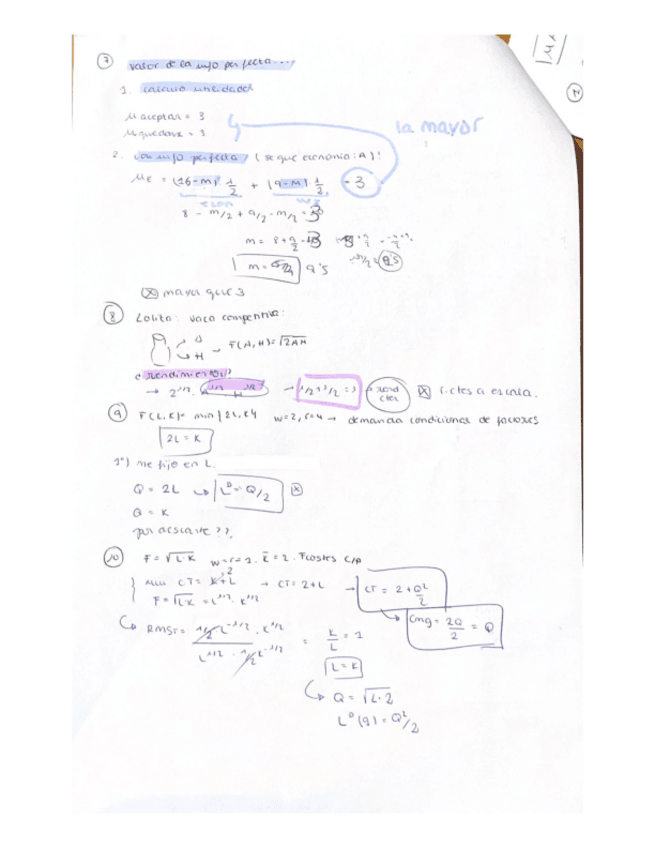 7 valor de la info perfecta...
1. calculo utilidades
μ aceptar = 3
μ quedarse = 3
la mayor
2. con info perfecta / (se que economia: A)!
μE = (16-m) 1/2 + (9-m) 1/2 - 3
8 - m/2 + 9/2 - m/2 = 3
m = 8 + 9/2 - 3
m = 9'5
☒ mayor que 3
8 Lolita: vaca competitiva:
F(A,H) = √2AH
¿rendimientos?
→ 2^1/2 · A^1/2 H^1/2 → 1/2 + 1/2 = 1 → rend ctes ☒ r. ctes a escala.
9 F(L,K) = min{2L,K} w=2, r=4 → demanda condiciones de factores
2L = K
1º) me fijo en L.
Q = 2L ↪ L^D = Q/2 ☒
Q = K
por descarte??
10 F = √L·K w=r=1. K̄=2. Fcostes c/p
min CT = K+L → CT = 2+L → CT = 2 + Q²/2
F = √LK = L^1/2 · K^1/2
Cmg = 2Q/2 = Q
↪ RMST = 1/2 L^-1/2 · K^1/2 / L^1/2 · 1/2 K^-1/2 = K/L = 1
L = K
↪ Q = √L·2
L^D(q) = Q²/2